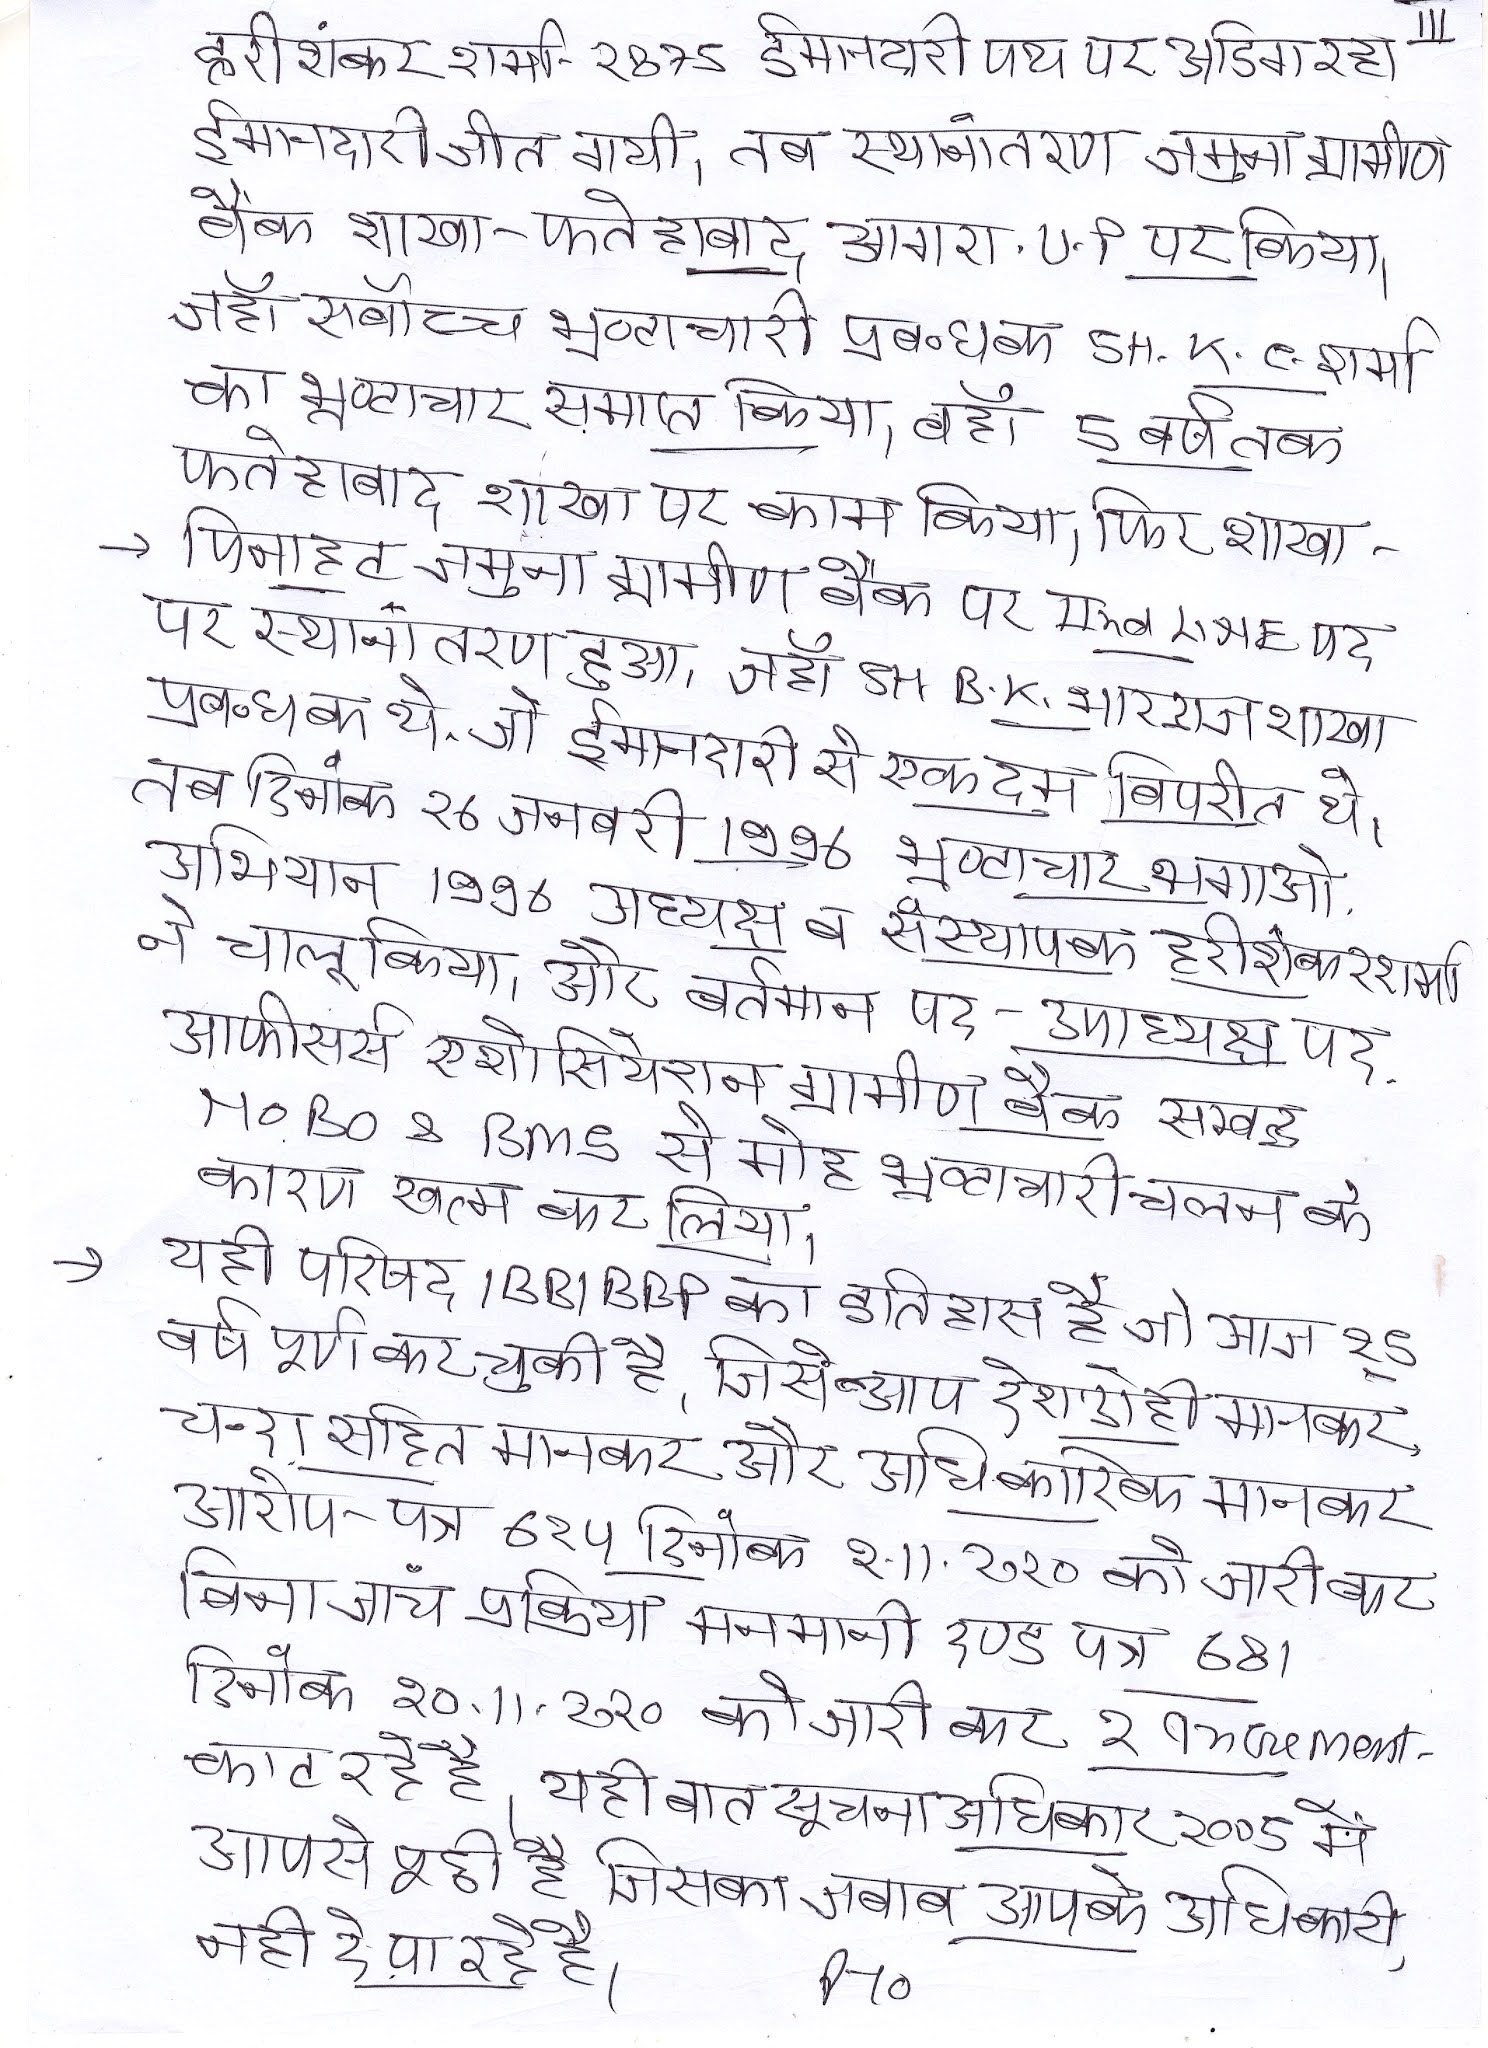 III
हरीशंकर शर्मा- 2875 ईमानदारी पथ पर अडिग रहा
ईमानदारी जीत गयी, तब स्थानांतरण जमुना ग्रामीण
बैंक शाखा-फतेहाबाद आगरा. U.P पर किया,
जहाँ सर्बोच्च भ्रष्टाचारी प्रबन्धक SH. K. C. शर्मा
का भ्रष्टाचार समाप्त किया, बहाँ 5 बर्ष तक
फतेहाबाद शाखा पर काम किया, फिर शाखा-
→ पिनाहट जमुना ग्रामीण बैंक पर LINE पद
पर स्थानांतरण हुआ, जहाँ SH B.K. भारद्वाज शाखा
प्रबन्धक थे. जो ईमानदारी से एकदम बिपरीत थे,
तब दिनांक 26 जनबरी 1996 भ्रष्टाचार भगाओ.
अभियान 1996 अध्यक्ष ब संस्थापक हरीशंकर शर्मा
ने चालू किया, और बर्तमान पद - उपाध्यक्ष पद.
आफीसर्स एशोसियेशन ग्रामीण बैंक सम्बद्ध
NOBO & BMS से मोह भ्रष्टाचारी चलन के
कारण खत्म कर लिया,
→ यही परिषद IBBIBBP का इतिहास है जो आज 25
बर्ष पूर्ण कर चुकी है, जिसे आप देशद्रोही मानकर,
चन्दा सहित मानकर और अधिकारिक मानकर
आरोप-पत्र 624 दिनांक 2.11.2020 को जारी कर
बिना जाँच प्रक्रिया मनमानी दण्ड पत्र 681
दिनांक 20.11.2020 को जारी कर 2 Increment-
काट रहे है, यही बात सूचना अधिकार 2005 में
आपसे पूछी है जिसका जबाब आपके अधिकारी,
नही दे पा रहे है,
PTO